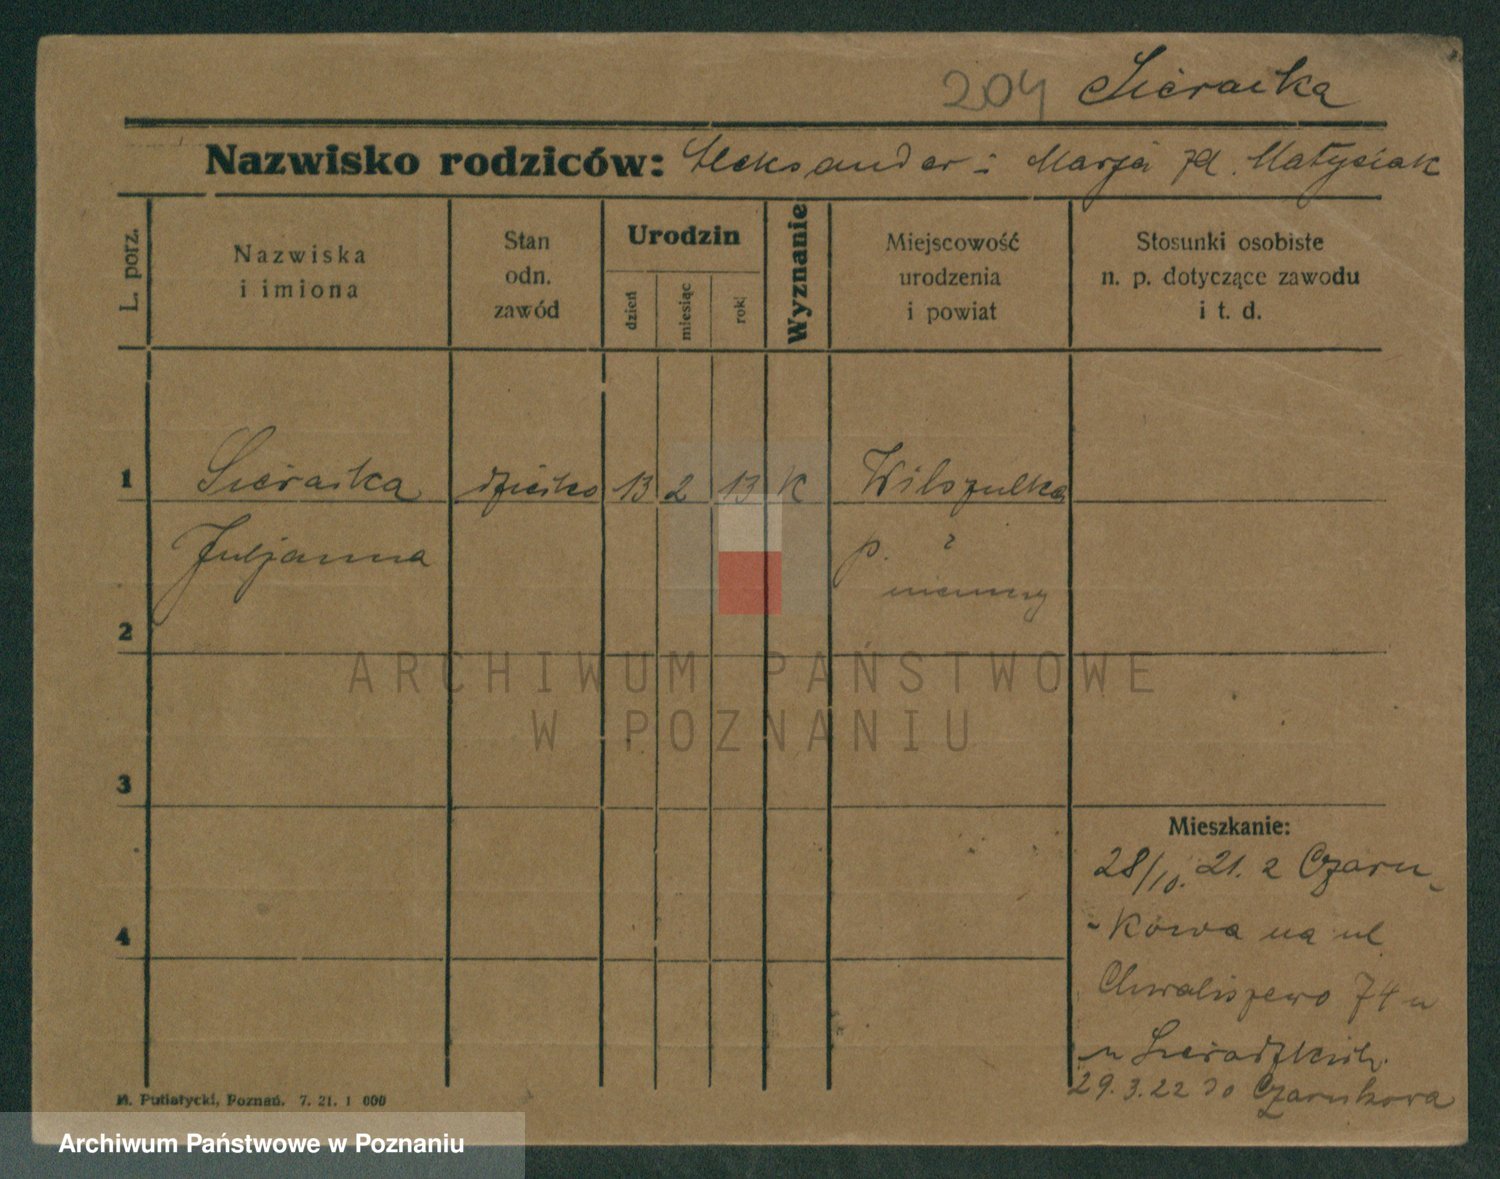 204 Sieracka
Nazwisko rodziców: Aleksander i Marja zd. Matysiak
L. porz.
Nazwiska
i imiona
Stan
odn.
zawód
Urodzin
dzień
miesiąc
rok
Wyznanie
Miejscowość
urodzenia
i powiat
Stosunki osobiste
n. p. dotyczące zawodu
i t. d.
1 Sieracka dziecko 13 2 13 K
Juljanna p. ?
2
3
4
Mieszkanie:
28/10. 21. z Czarn-
-kowa na ul
Chwaliszewo 74 u
29.3.22 do Czarnkowa
M. Putiatycki, Poznań. 7. 21. 1 000
ARCHIWUM PAŃSTWOWE
W POZNANIU
Archiwum Państwowe w Poznaniu